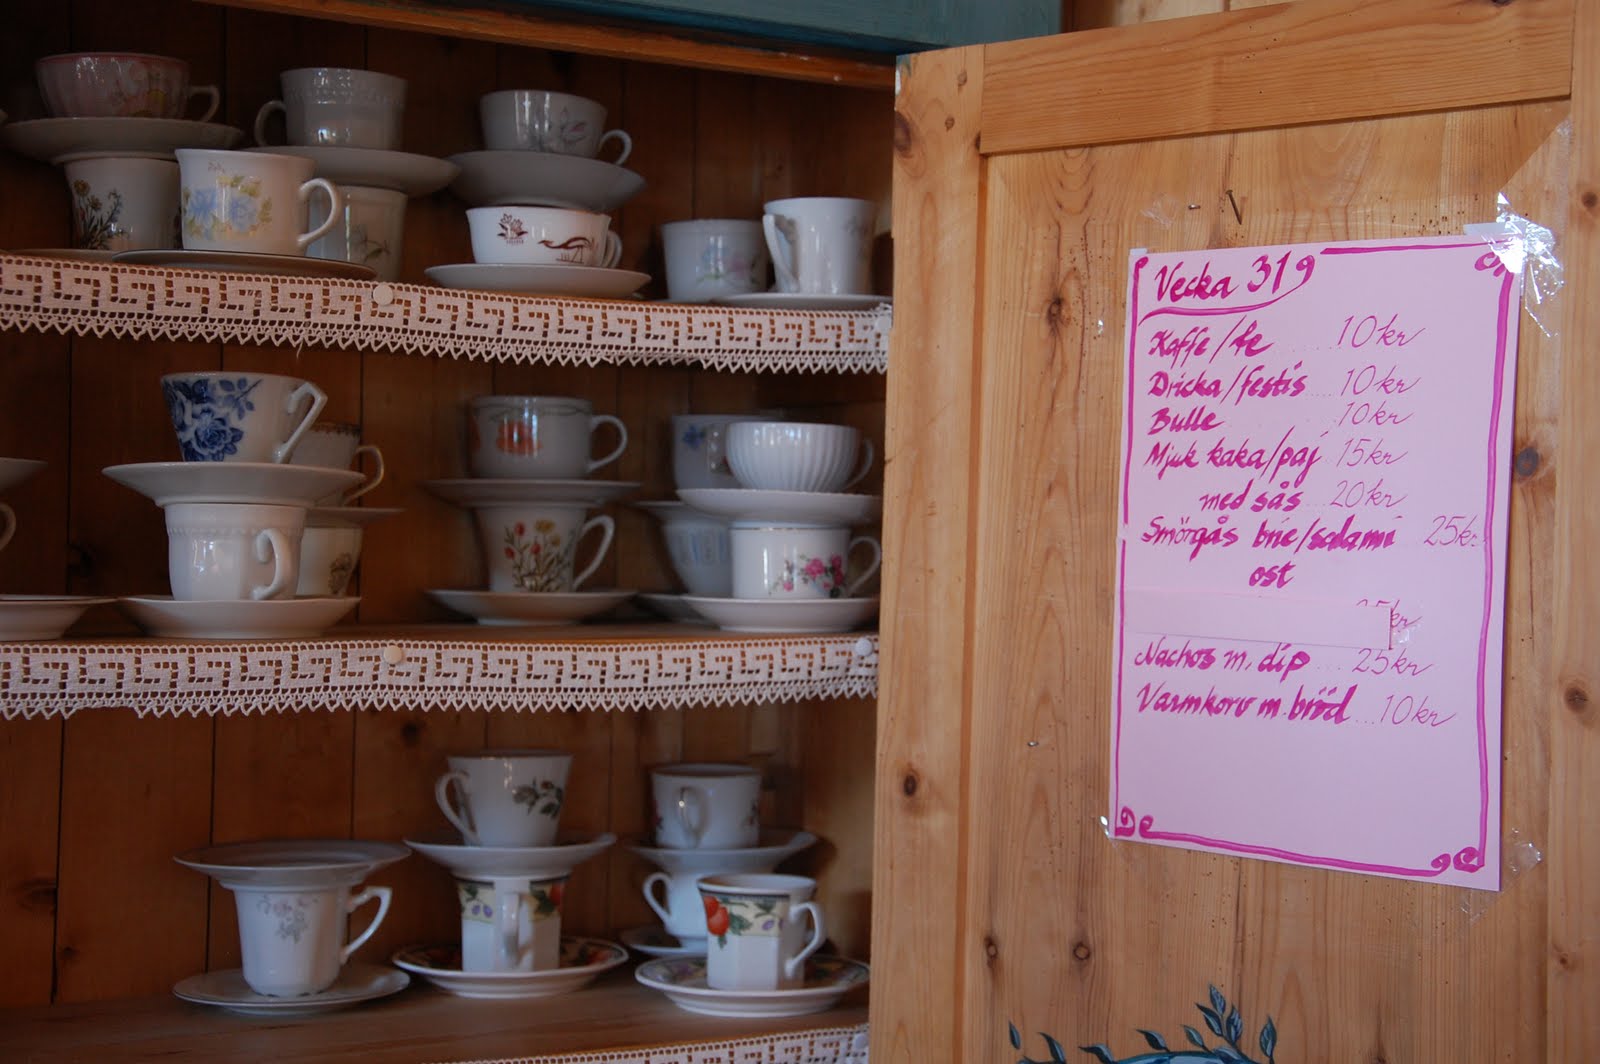 Vecka 31
Kaffe/te ...... 10kr
Dricka/festis .... 10kr
Bulle ....... 10kr
Mjuk kaka/paj 15kr
med sås ... 20kr
Smörgås brie/salami 25kr
ost
kr
Nachos m. dip ... 25kr
Varmkorv m. bröd ... 10kr